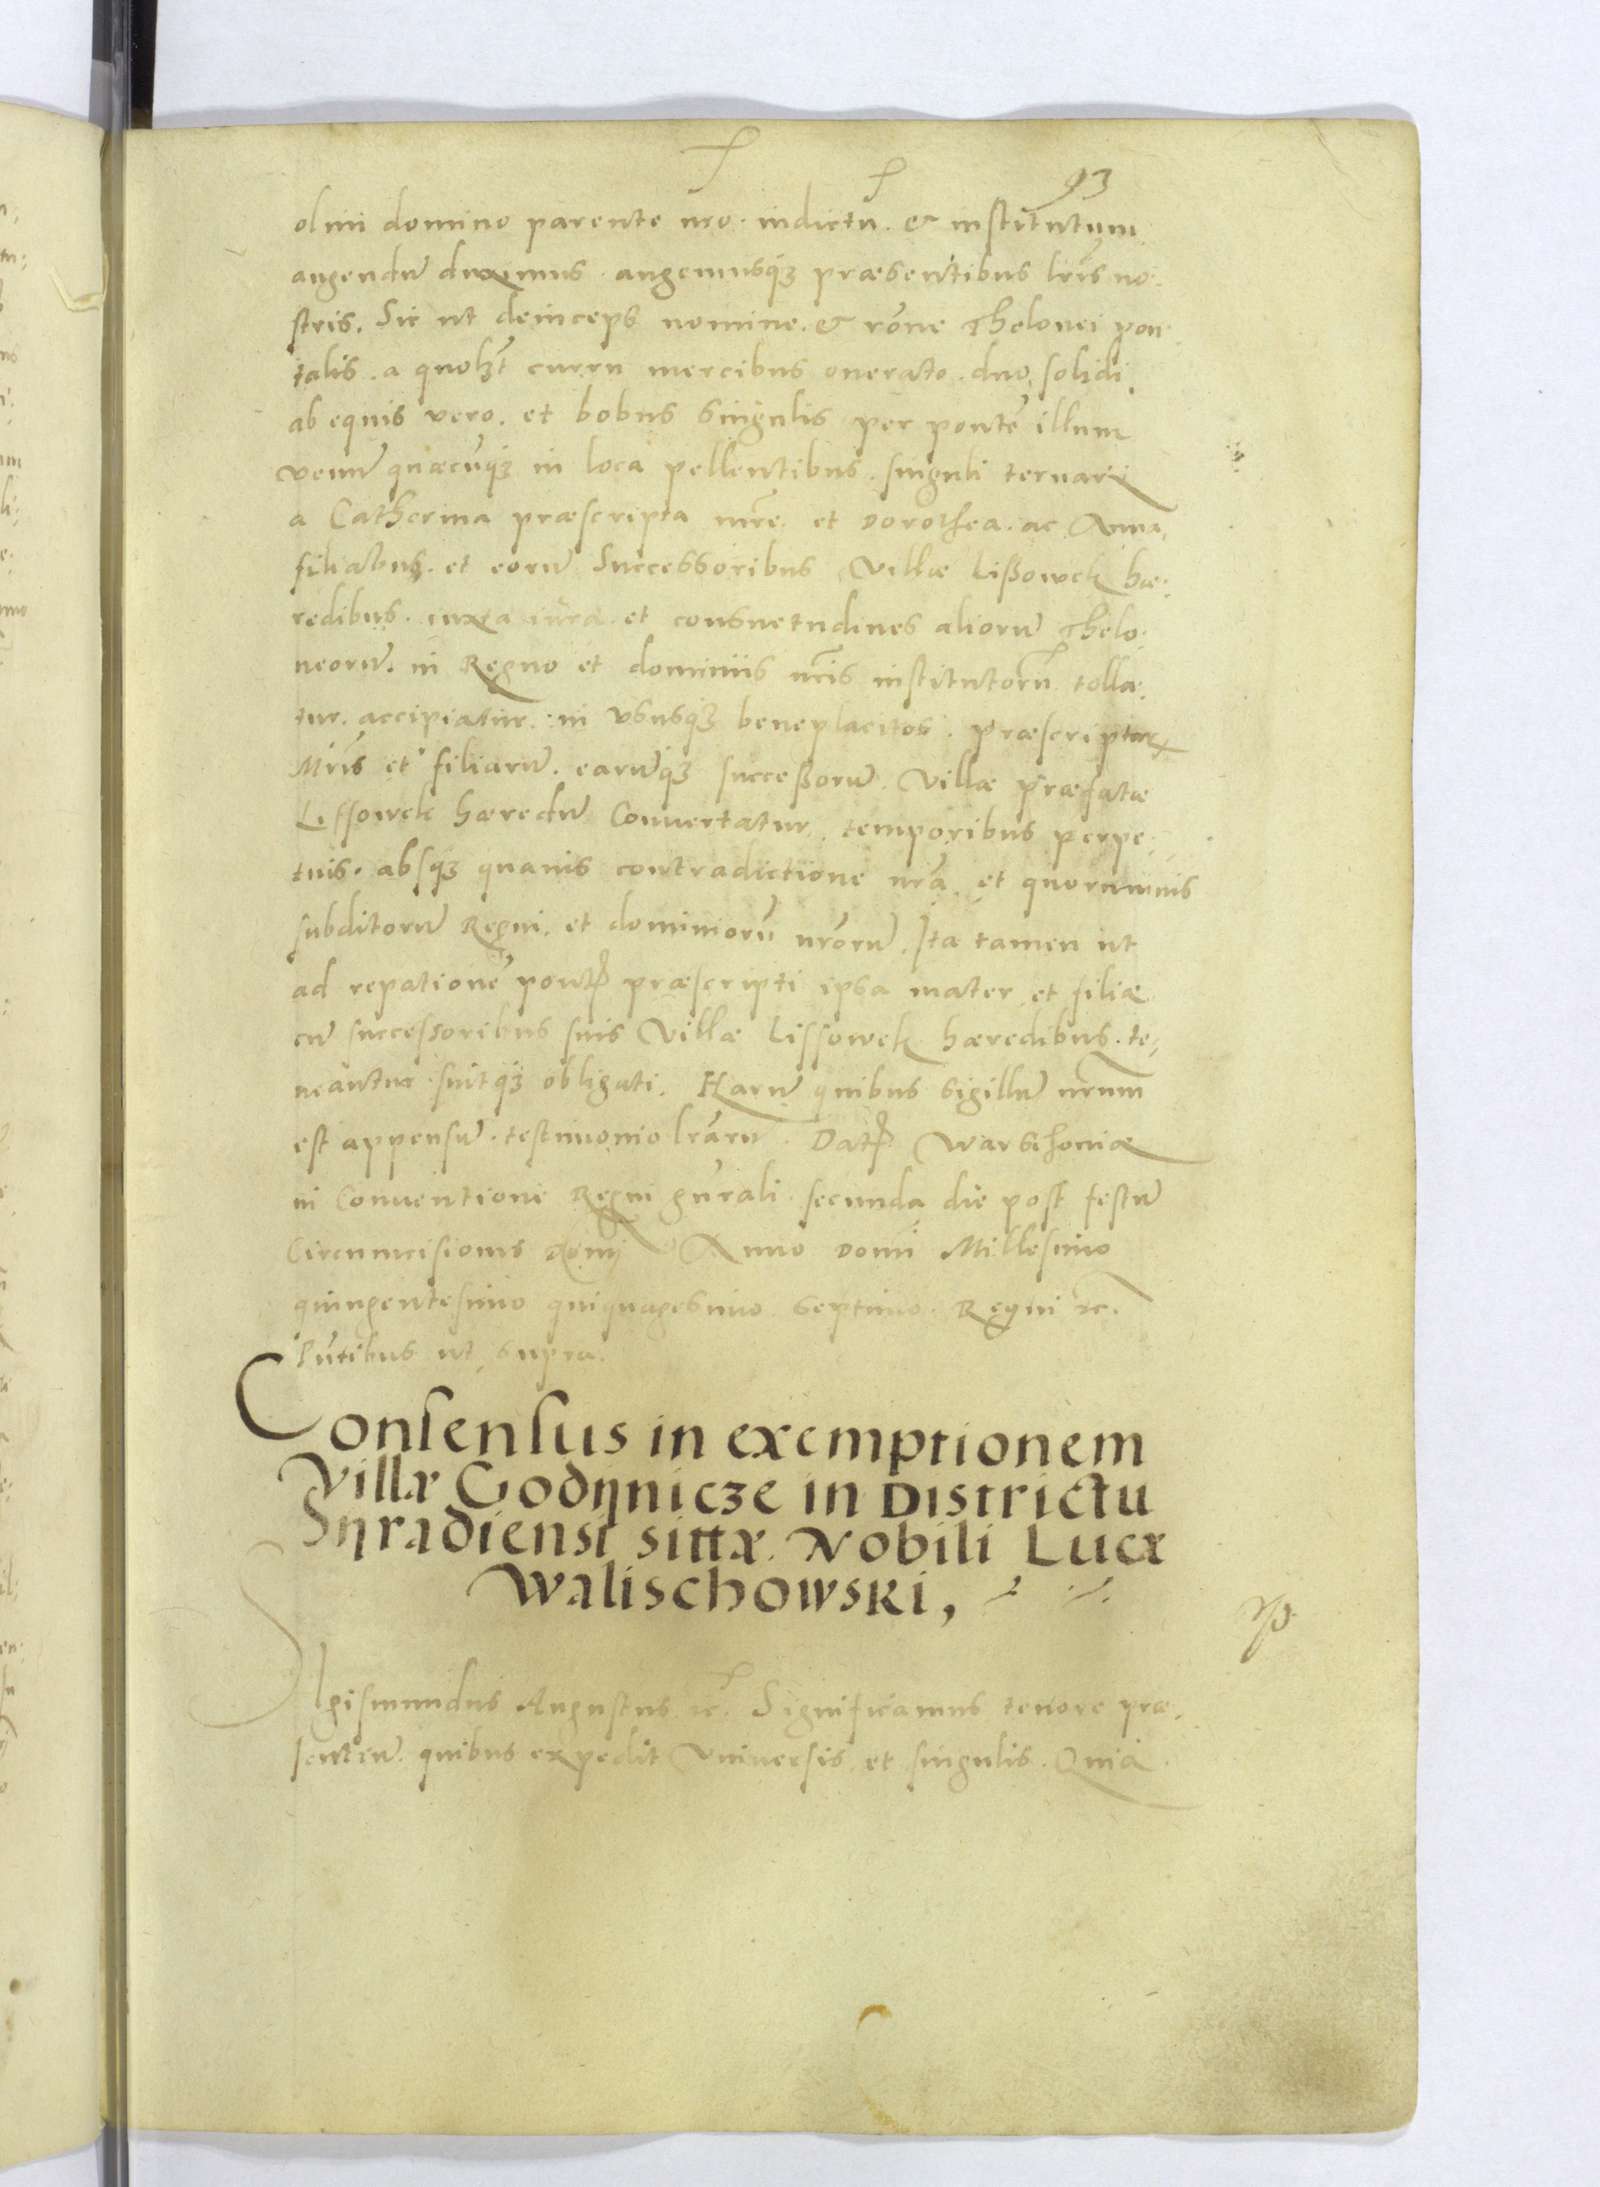 93
olim domino parente nro. indictũ. & institutum
augendũ duximus. augemusq; præsentibus lris no:
stris. Sic ut deinceps nomine. & rõne Thelonei pon:
talis. a quolzt curru mercibus onerato. duo solidi.
ab equis vero. et bobus singulis per pontẽ illum
venũ quæcũq; in loca pellentibus. singuli ternarij
a Catherina præscripta mre. et Dorothea. ac Anna,
filiabus. et eorũ Successoribus Villæ Lißowek hæ:
redibus. iuxta iura. et consuetudines aliorũ Thelo:
neorũ. in Regno et dominiis nris institutorũ tolla:
tur. accipiatur. in vsusq; beneplacitos. præscriptar
Mris et filiarũ. earũq; succeßorũ. Villæ præfatæ
Lissowek hæredũ Conuertatur. temporibus perpe:
tuis. absq; quauis contradictione nrã. et quorumuis
subditorũ Regni. et dominiorũ nrõrũ. Ita tamen ut
ad repationẽ pontis præscripti ipsa mater et filiæ
cũ successoribus suis Villæ Lissowek hæredibus. te:
neantur sintq; obligati. Harũ quibus sigillũ nrum
est appensũ. testimonio lrarũ. Dat Warschouiæ
in Conuentione Regni gñrali. secunda die post festũ
Circumcisionis domj Anno Domi Millesimo
quingentesimo quiquagesimo septimo. Regni ec.
Pñtibus ut supra.
Consensus in exemptionem
Villæ Godÿnicze in Districtu
Sÿradiensi sittæ. Nobili Lucæ
Walischowski,
Sigismundus Augustus ec. Significamus tenore præ:
sentiũ. quibus expedit Vniuersis et singulis. Quia